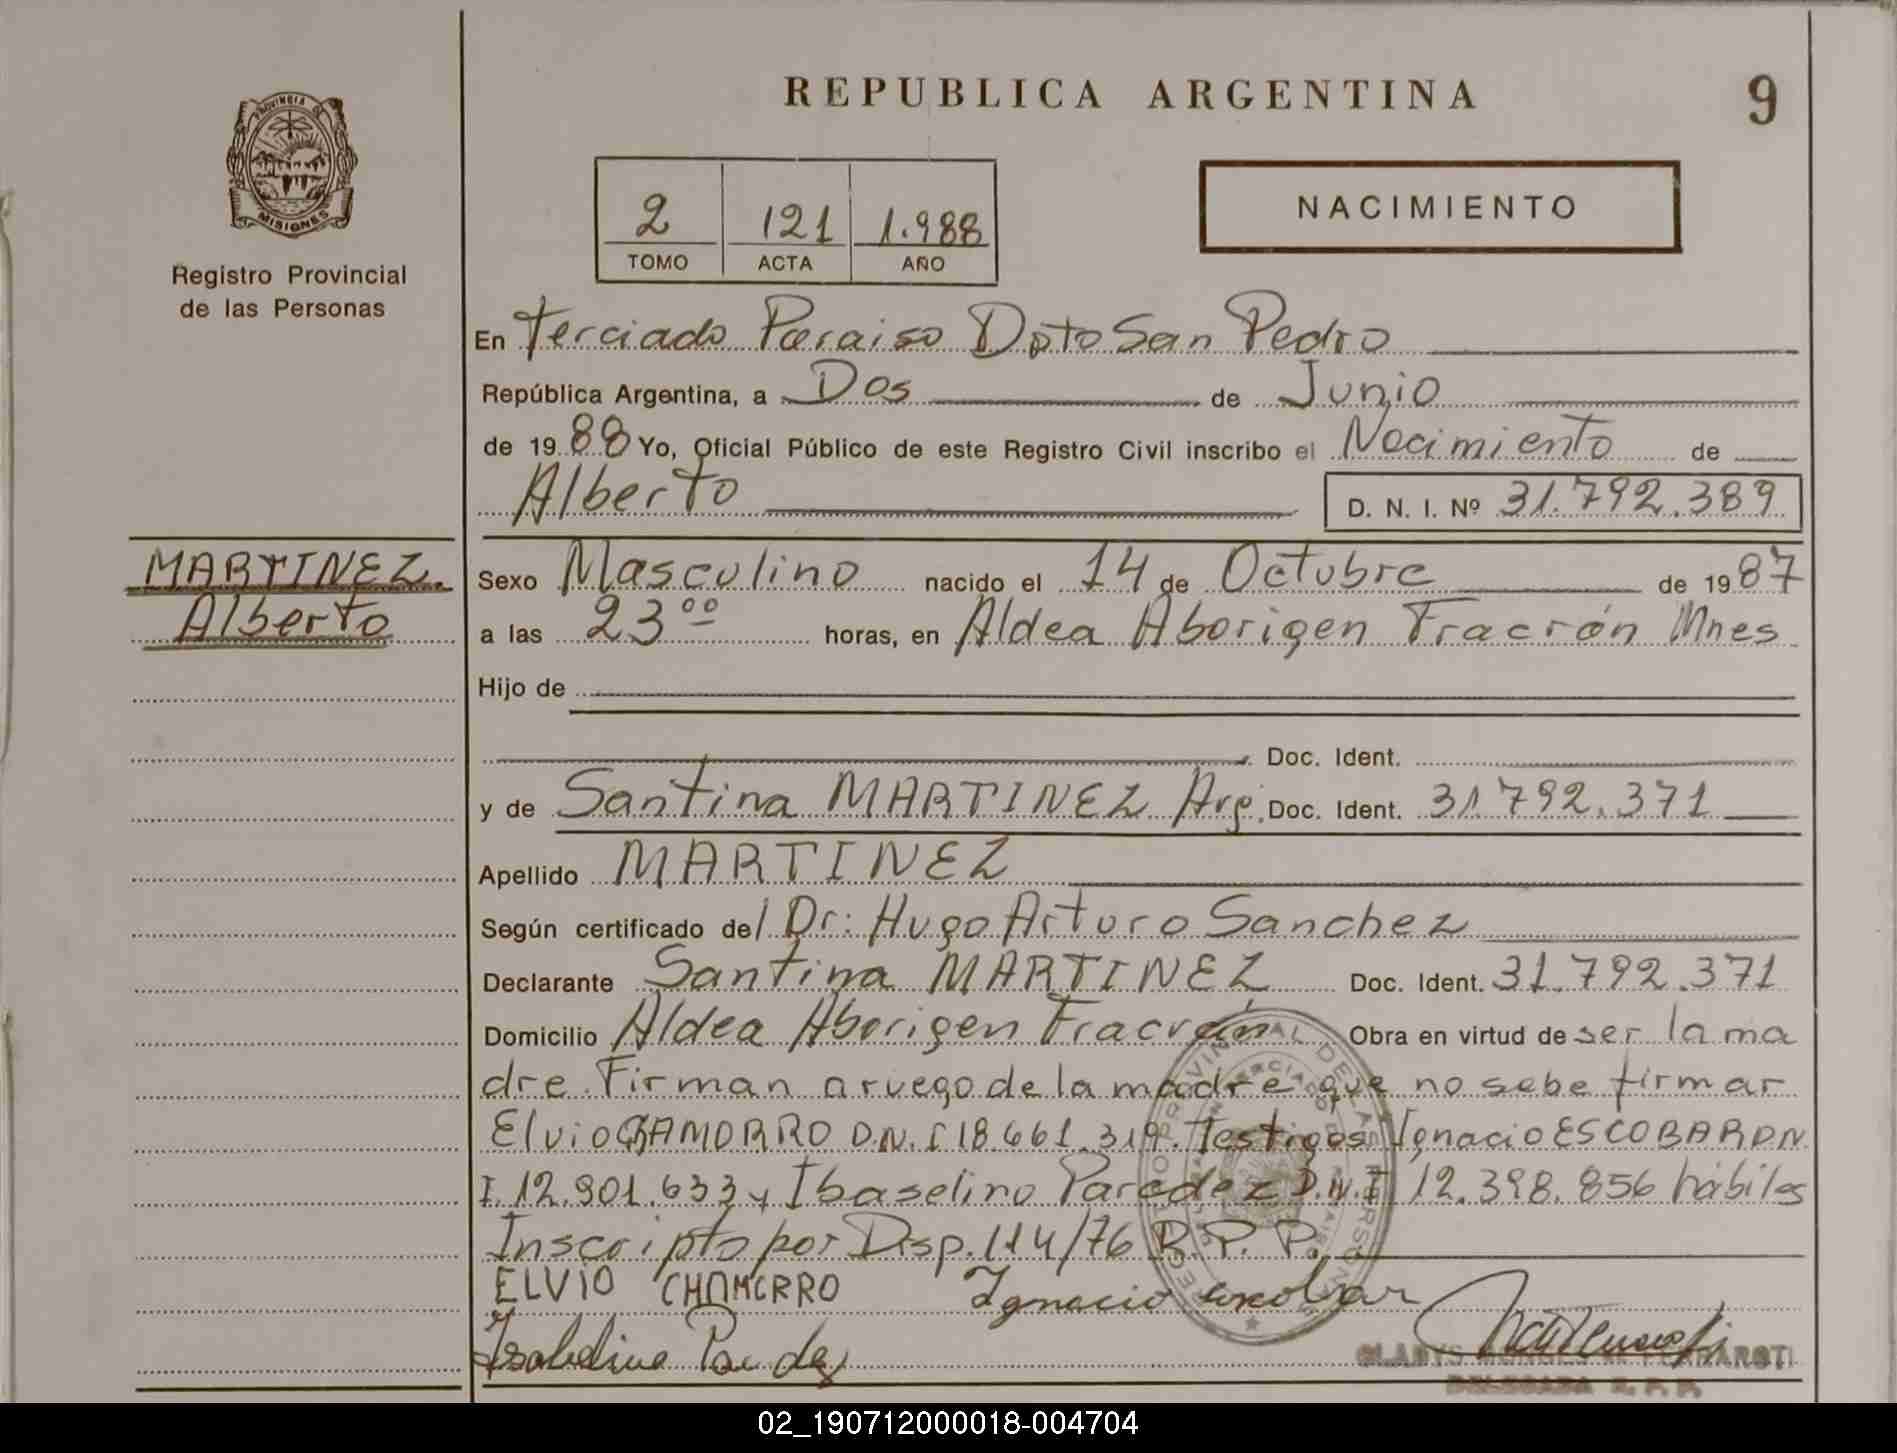 REPUBLICA ARGENTINA
9
PROVINCIA DE
MISIONES
Registro Provincial
de las Personas
2 121 1.988
TOMO ACTA AÑO
NACIMIENTO
En Terciado Paraiso Dpto San Pedro
República Argentina, a Dos de Junio
de 19 88 Yo, Oficial Público de este Registro Civil inscribo el Nacimiento de
Alberto D. N. I. Nº 31.792.389
MARTINEZ
Alberto
Sexo Masculino nacido el 14 de Octubre de 19 87
a las 23 ºº horas, en Aldea Aborigen Fracrán Mnes
Hijo de
Doc. Ident.
y de Santina MARTINEZ Arg. Doc. Ident. 31.792.371
Apellido MARTINEZ
Según certificado del Dr: Hugo Arturo Sanchez
Declarante Santina MARTINEZ Doc. Ident. 31.792.371
Domicilio Aldea Aborigen Fracrán Obra en virtud de ser la ma
dre. Firman a ruego de la madre que no sabe firmar
Elvio CHAMORRO D.N.I 18.661.319. Testigos Ignacio ESCOBAR D.N.
I. 12.901.633 y Ibaselino Paredez D.N.I 12.398.856 hábiles
Inscripto por Disp. 114/76 R. P. P.
ELVIO CHAMORRO Ignacio escobar
DELEGADA R. P. P.
02_190712000018-004704